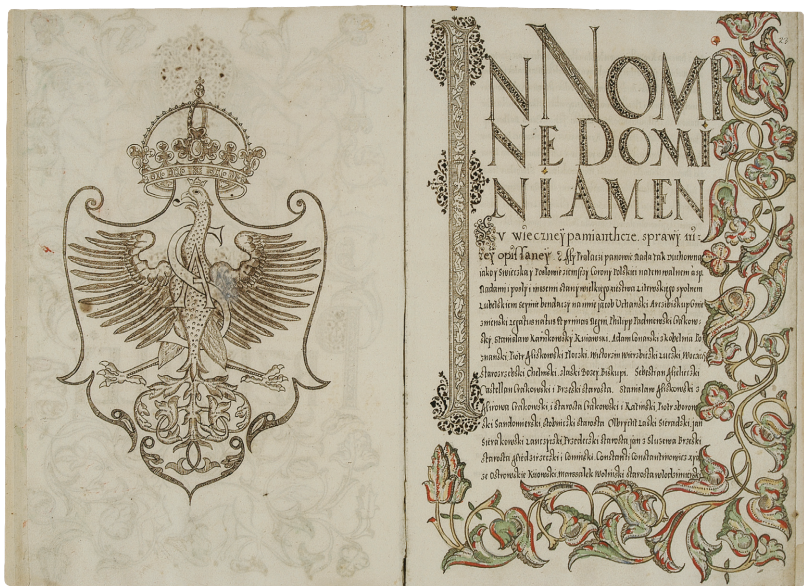 27
IN NOMI
NE DOMI
NI AMEN
wieczney pamianthcze. sprawy ni:
zey opissaney
panowie Rada tak Duchowna
iako y Swieczka y Posłowie ziemszy Corony Polskiei na tem walnem a sp
Radami y posły y inssemi stany wielkiego xiestwa Litewskiego społnem
Lubelskiem seymie bendaczy na imie jacob Uchanski Arczibiskup Gnie
znienski legatus natus y primas Regni. Philipp Padniewski Crakow-
sky, Stanislaw Karnkowsky Kuiawski. Adam Conarski s Kobelina Po
znanski, Piotr Misskowski Płoczki. Wictorzin Wierzbiczki Luczki Woczech
Starozrzebski Chelmski. s łaski Bozey Biskupi. Sebestian Mieleczki
Castellan Crakowski i Brzeski starosta. Stanislaw Misskowski s
Mirowa Crakowski i starosta Crakowski i Ratinski. Piotr sborow
ski Sandomierski, stobniczki starosta. Olbrycht Laski Sieradski. jan
Sierakowski Lanczyczki, Przedeczki starosta jan s Sluzewa Brzeski
starosta Miedzirzeczki i Coninski. Constanti Constantinowicz xyo
ze Ostrowskie Kiiowski, marssalek wolinski starosta wlodzimierski